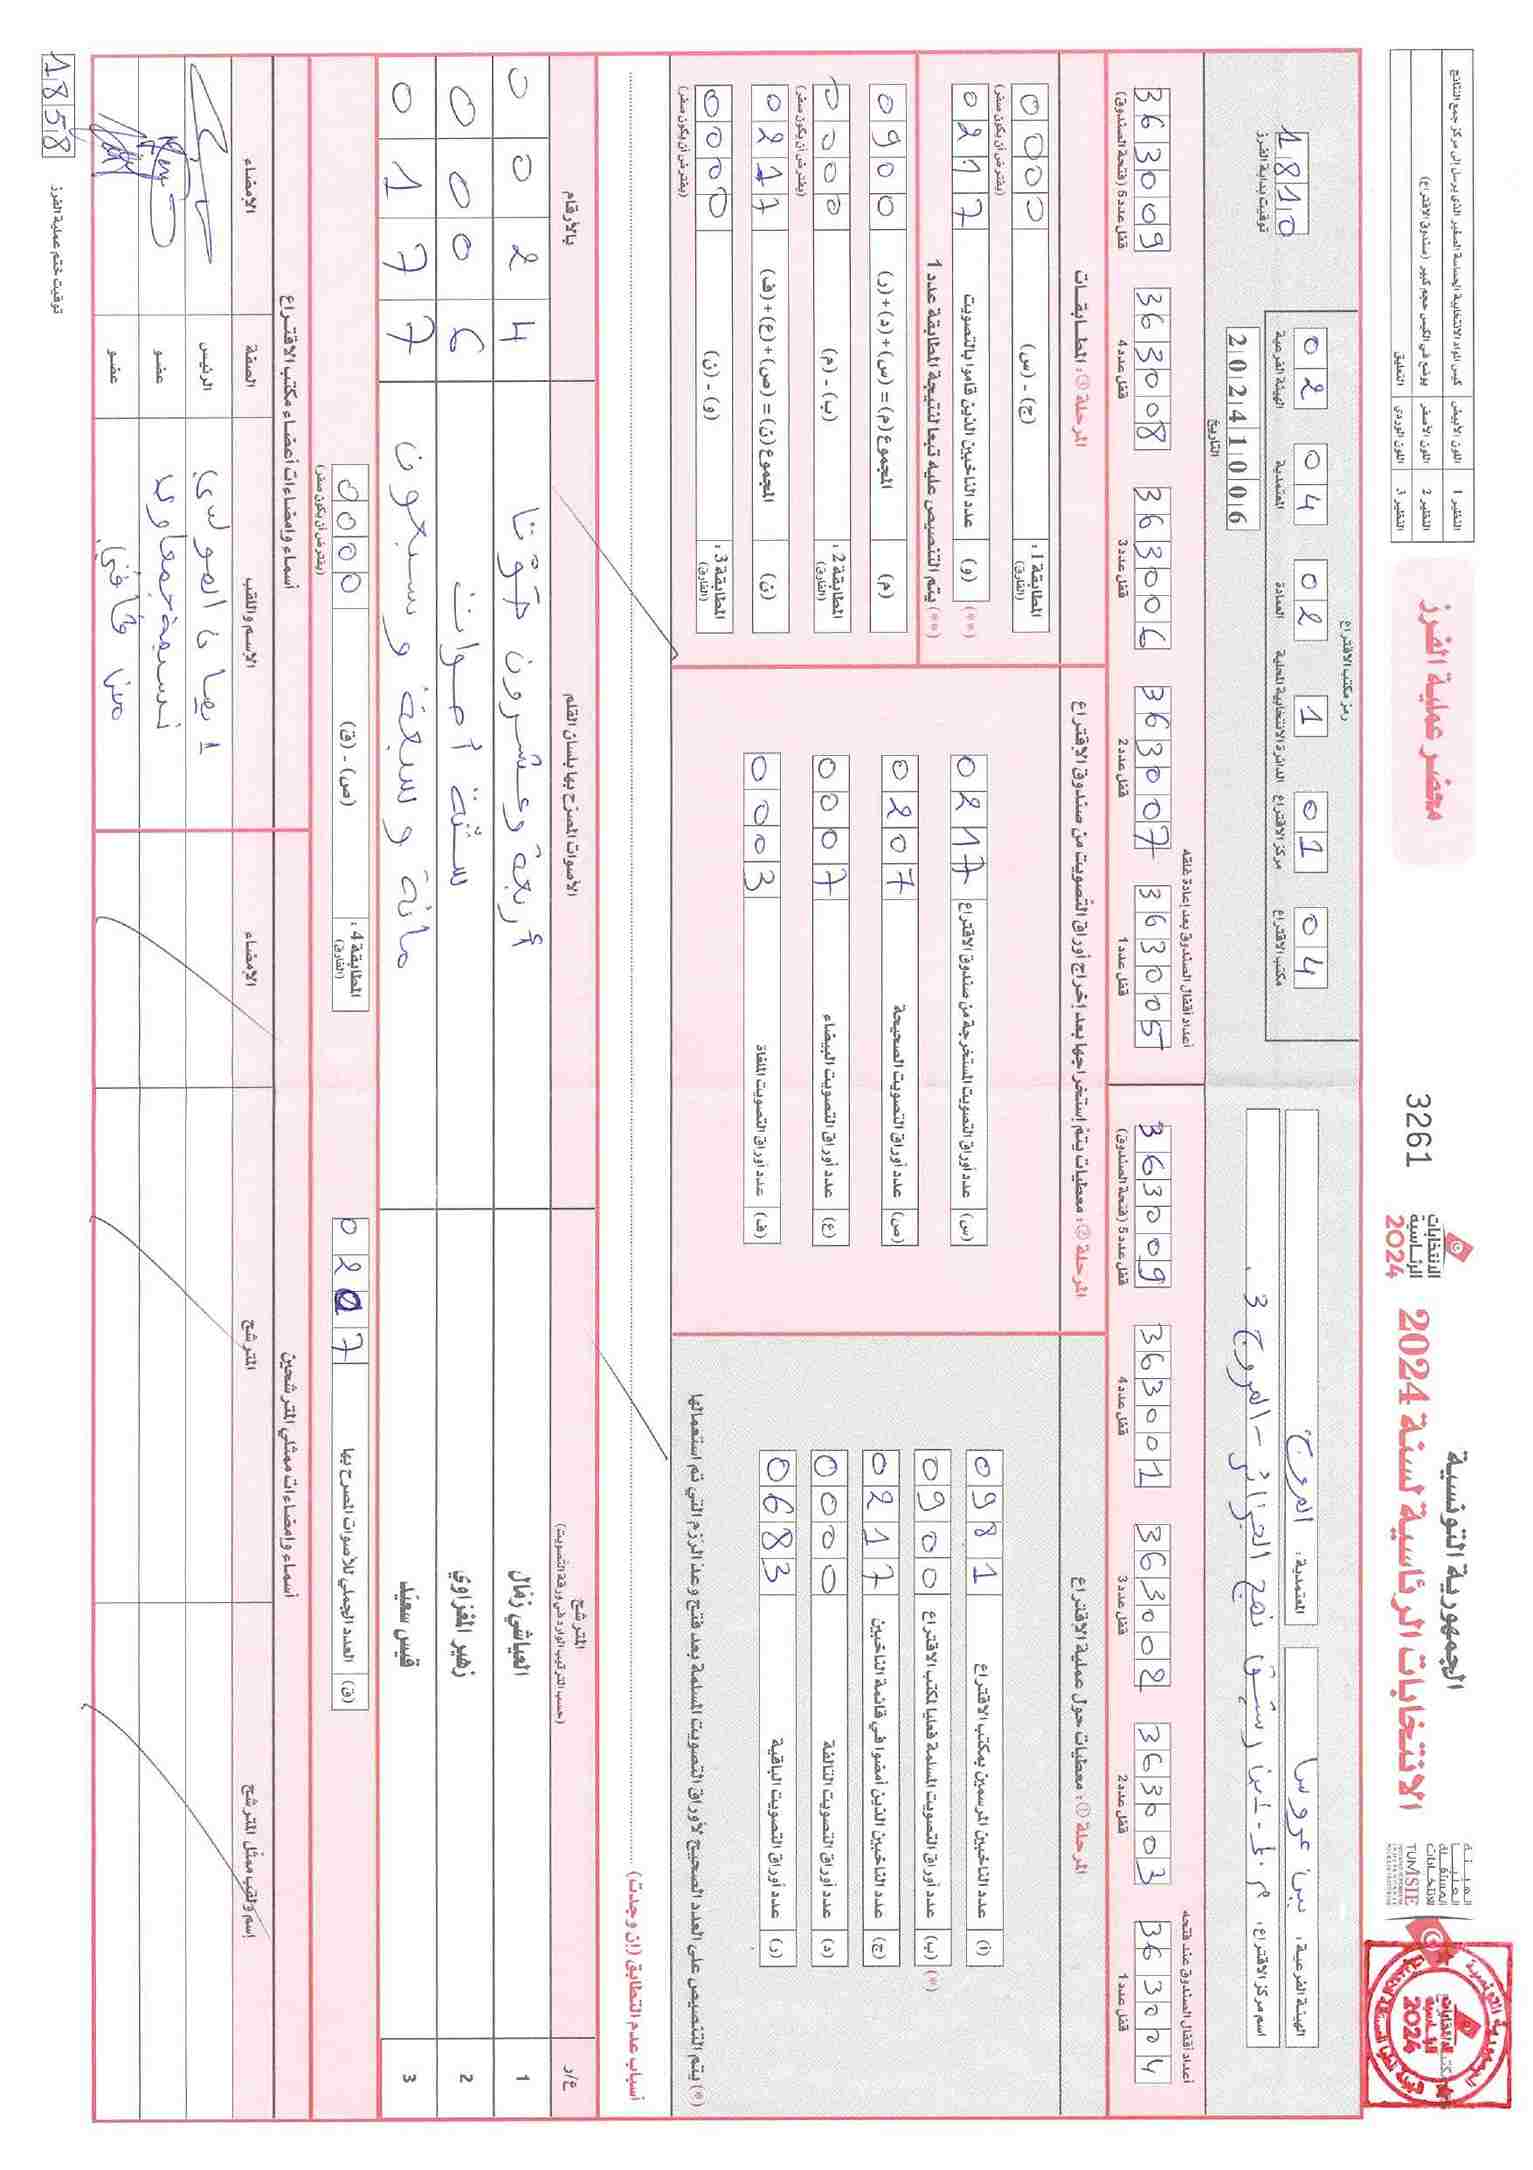 الجمهورية التونسية
الانتخابات الرئاسية لسنة 2024
الانتخابات
الرئاسية
2024
3261
محضر عملية الفرز
النظير 1 اللون الأبيض كيس المواد الانتخابية الحساسة الصغير الذي يرسل إلى مركز جمع النتائج
النظير 2 اللون الأصفر يوضع في الكيس حجم كبير (صندوق الاقتراع)
النظير 3 اللون الوردي التعليق
الهيئة الفرعية: بن عروس
المعتمدية: المروج
اسم مركز الاقتراع: م.إ.ابن رشيق نهج الجزائر - المروج 3
رمز مكتب الاقتراع
04 مكتب الاقتراع
01 مركز الاقتراع
1 الدائرة الانتخابية المحلية
02 العمادة
04 المعتمدية
02 الهيئة الفرعية
التاريخ 20241006
1810
توقيت بداية الفرز
أعداد أقفال الصندوق عند فتحه
363004 قفل عدد 1
363003 قفل عدد 2
363002 قفل عدد 3
363001 قفل عدد 4
363009 قفل عدد 5 (فتحة الصندوق)
أعداد أقفال الصندوق بعد إعادة غلقه
363005 قفل عدد 1
363007 قفل عدد 2
363006 قفل عدد 3
363008 قفل عدد 4
363009 قفل عدد 5 (فتحة الصندوق)
المرحلة ①: معطيات حول عملية الاقتراع
(أ) عدد الناخبين المرسمين بمكتب الاقتراع 0981
(ب) عدد أوراق التصويت المسلمة فعليا لمكتب الاقتراع 0900 (*)
(ج) عدد الناخبين الذين أمضوا في قائمة الناخبين 0217
(د) عدد أوراق التصويت التالفة 0000
(ر) عدد أوراق التصويت الباقية 0683
(*) يتم التنصيص على العدد الصحيح لأوراق التصويت المسلمة بعد فتح وعد الرزم التي تم استعمالها
المرحلة ②: معطيات يتم إستخراجها بعد إخراج أوراق التصويت من صندوق الاقتراع
(س) عدد أوراق التصويت المستخرجة من صندوق الاقتراع 0217
(ص) عدد أوراق التصويت الصحيحة 0207
(ع) عدد أوراق التصويت البيضاء 0007
(ف) عدد أوراق التصويت الملغاة 0003
المرحلة ③: المطابقات
المطابقة 1: (الفارق) (ج) - (س) 000
(يفترض أن يكون صفر)
(**) (و) عدد الناخبين الذين قاموا بالتصويت 0217
(**) يتم التنصيص عليه تبعا لنتيجة المطابقة عدد 1
(م) المجموع (م) = (س) + (د) + (ر) 0900
المطابقة 2: (الفارق) (ب) - (م) 0000
(يفترض أن يكون صفر)
(ن) المجموع (ن) = (ص) + (ع) + (ف) 0217
المطابقة 3: (الفارق) (و) - (ن) 0000
(يفترض أن يكون صفر)
أسباب عدم التطابق (إن وجدت)
ع/ر المترشح الأصوات المصرح بها بلسان القلم بالأرقام
(حسب الترتيب الوارد في ورقة التصويت)
1 العياشي زمال أربعة وعشرون صوتا 0024
2 زهير المغزاوي ستة أصوات 0006
3 قيس سعيد مائة و سبعة و سبعون 0177
(ق) العدد الجملي للأصوات المصرح بها 0207
المطابقة 4: (الفارق) (ص) - (ق) 000
(يفترض أن يكون صفر)
أسماء وإمضاءات ممثلي المترشحين
إسم ولقب ممثل المترشح المترشح الإمضاء
أسماء وإمضاءات أعضاء مكتب الاقتراع
الإسم واللقب الصفة الإمضاء
الرئيس
عضو
عضو
توقيت ختم عملية الفرز 1858